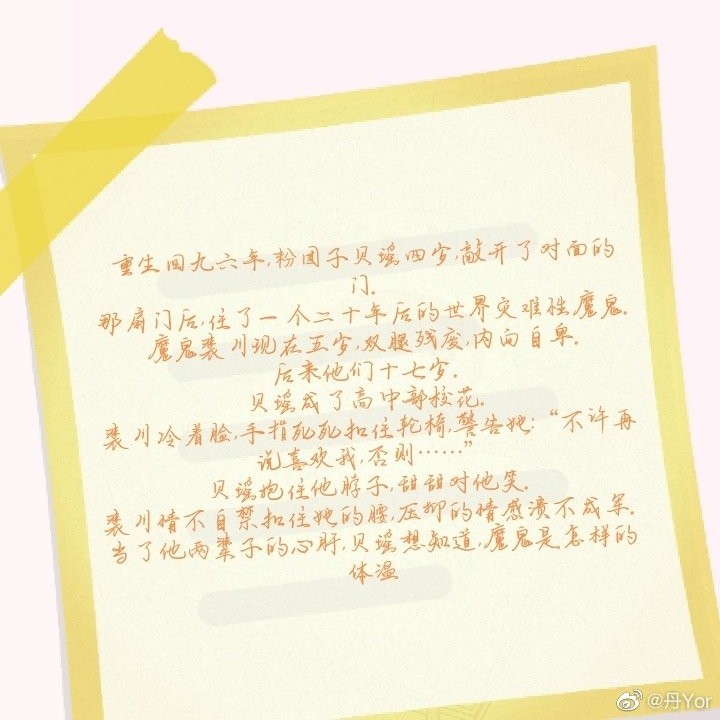 重生回九六年,粉团子贝瑶四岁,敲开了对面的
门.
那扇门后,住了一个二十年后的世界灾难性魔鬼.
魔鬼裴川现在五岁,双腿残废,内向自卑.
后来他们十七岁.
贝瑶成了高中部校花.
裴川冷着脸,手指死死扣住轮椅,警告她:“不许再
说喜欢我,否则……”
贝瑶抱住他脖子,甜甜对他笑.
裴川情不自禁扣住她的腰,压抑的情感溃不成军.
当了他两辈子的心肝,贝瑶想知道,魔鬼是怎样的
体温
@丹Yor